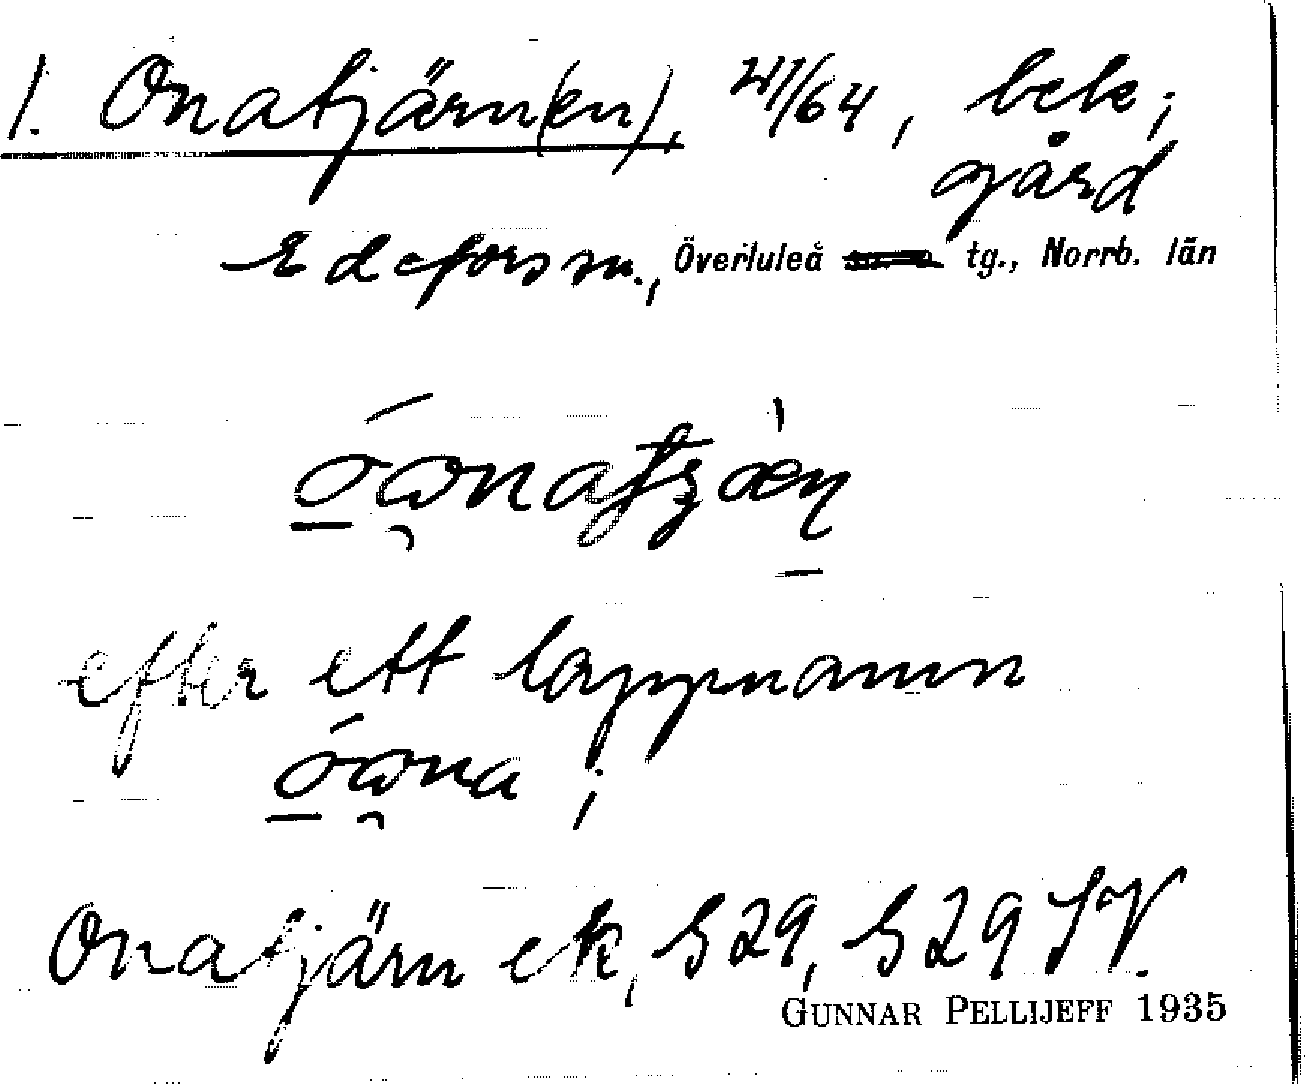 1. Onatjärn(en), 21/64, bek;
gård
Edefors sn., Överluleå tg., Norrb. län
efter ett lappnamn
Onatjärn ek, S 29, S 29 SV.
GUNNAR PELLIJEFF 1935